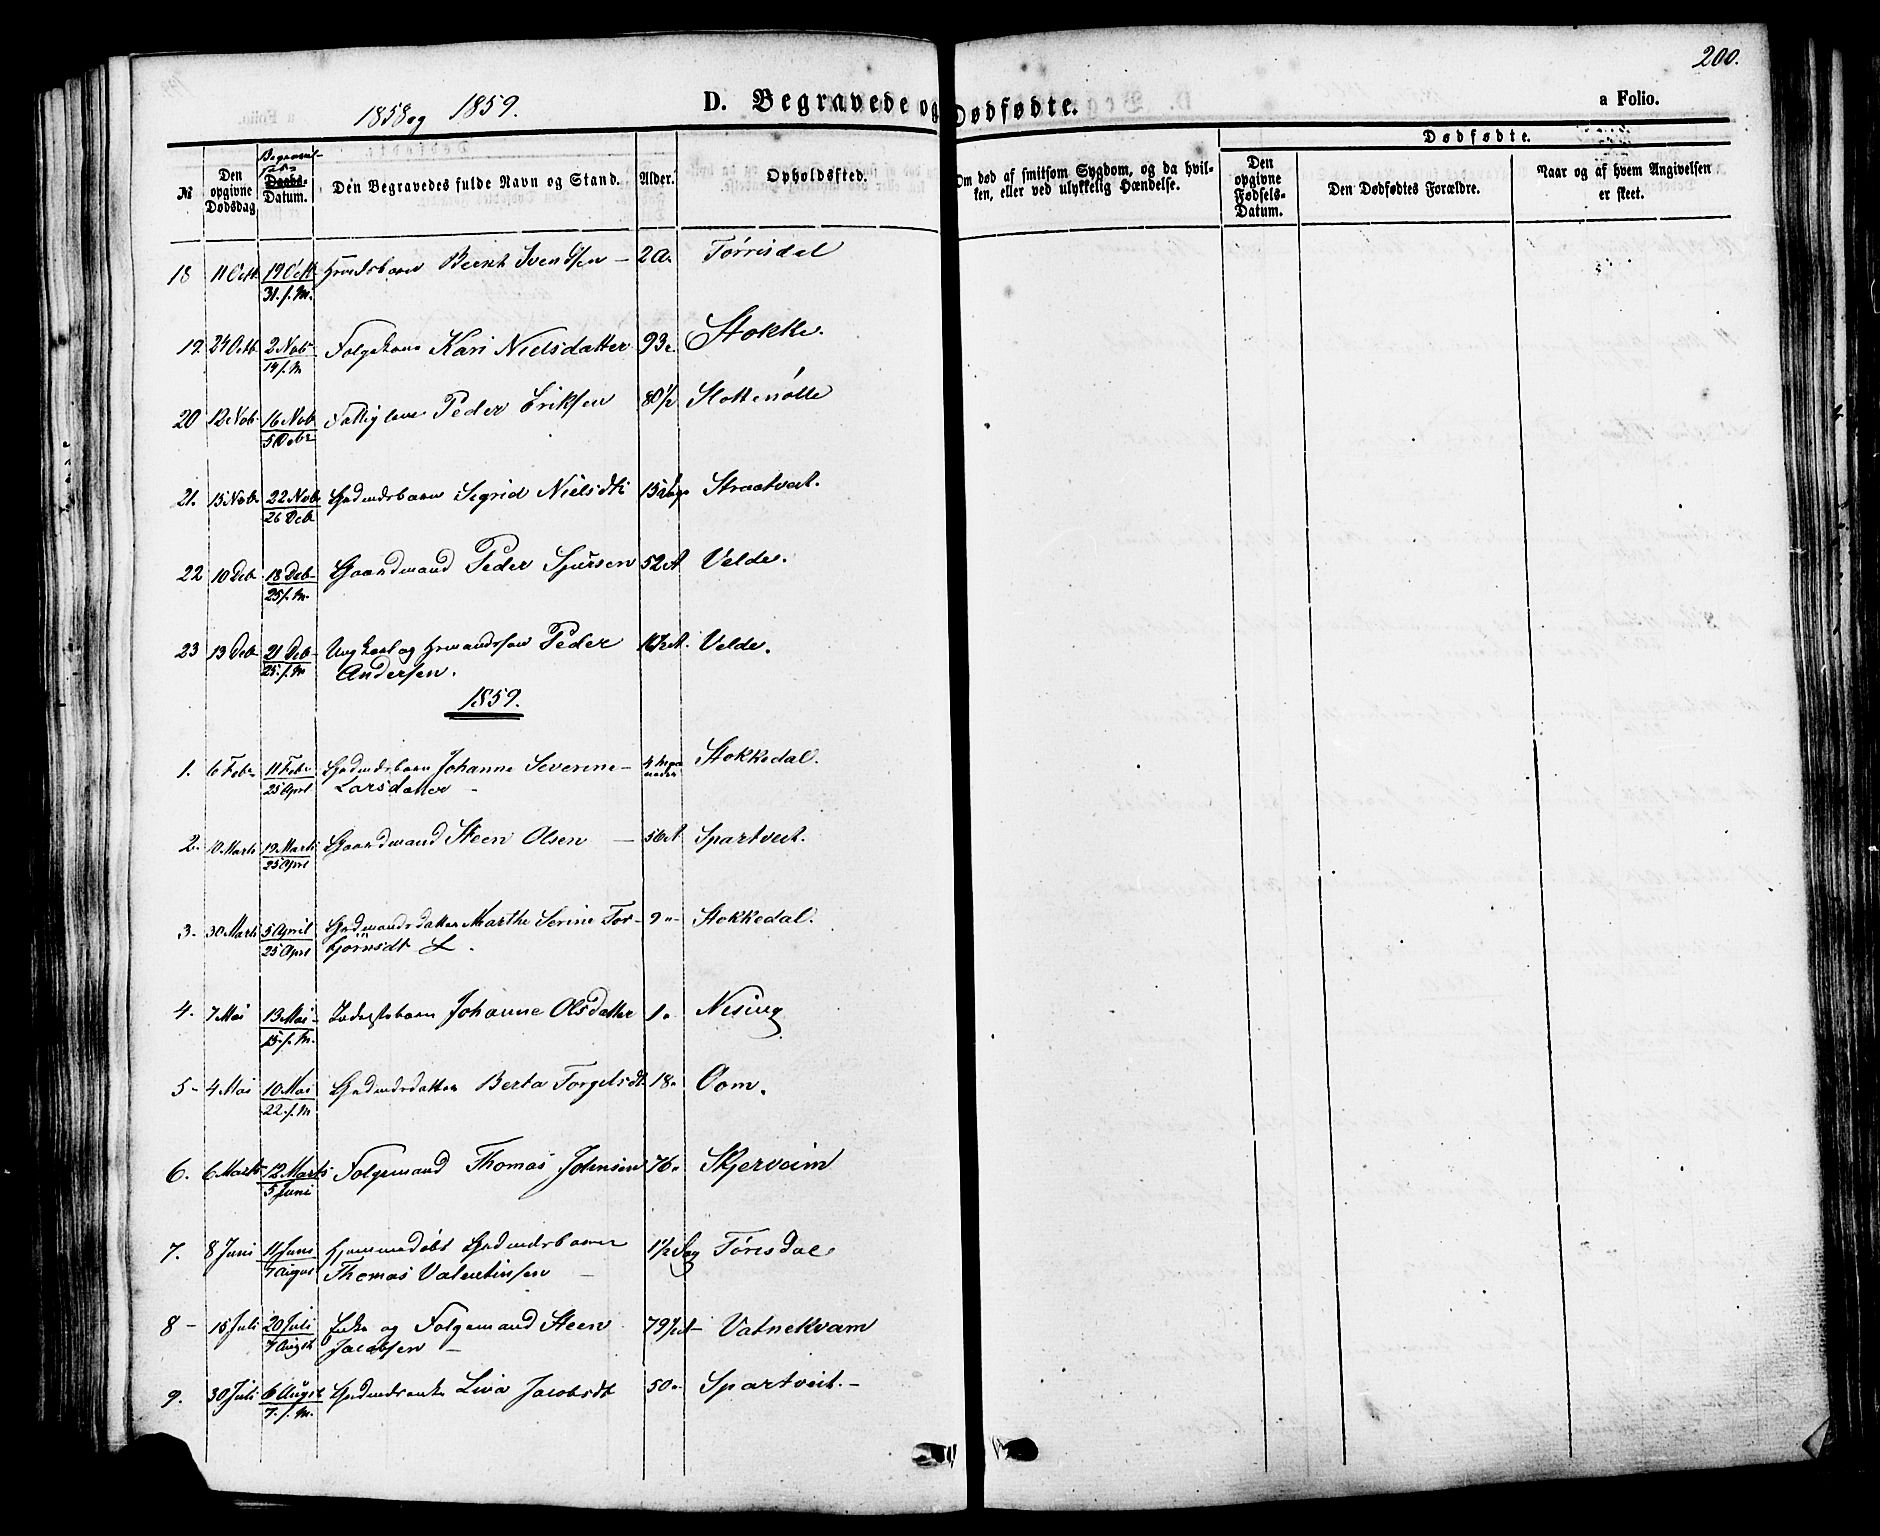 200.
1858 og 1859.
D. Begravede og Dødfødte.
a Folio.
№
Den opgivne Dødsdag
Begravel-
Daabs-
Datum.
Den Begravedes fulde Navn og Stand.
Alder.
Opholdssted.
Om død af smitsom Sygdom, og da hvil-
ken, eller ved ulykkelig Hændelse.
Dødfødte.
Den opgivne Fødsels-Datum.
Den Dødfødtes Forældre.
Naar og af hvem Angivelsen
er skeet.
18 11 Octb 19 Octb Bernt Svendsen — 2 A. Tørrisdal
31. f. M.
19. 24 Octb 2 Nob Folgekone Kari Nielsdatter 93 Stokke.
14 f. M
20 12 Nob 16 Nob Fattiglem Peder Eriksen 80½ Slottenølle
5 Debr
21. 15 Nob 22 Nob Grdmdsbarn Sigrid Nielsdtr Straatveit.
26 Deb
22 10 Deb 18 Deb Gaardmand Peder Sjursen 52 A Velde.
25 f. M.
23 13 Deb 21 Deb Ungkarl og Peder Velde.
25. f. M Andersen.
1859.
1. 6 Febr 11 Febr Grdmdsbarn Johanne Severine Stokkedal.
25 April Larsdatter —
2. 10 Marts 19 Marts Gaardmand Steen Olsen — 56 A Spartveit.
25 April
3. 30 Marts 5 April Grdmandsdatter Marthe Serine Tor- 9 Stokkedal.
25 April bjørnsdt
4. 7 Mai 13 Mai Inderstebarn Johanne Olsdatter 1 Nesing
15. f. M.
5 4 Mai 10 Mai Grdmdsdatter Berta Torgelsdt 18 Oom.
22. f. M
6. 6 Marts 12 Marts Folgemand Thomas Johnsen 76 Skjervem
5 Juni
7. 8 Juni 11 Juni hjemmedøbt Grdmdsbarn 1½ Dag Tørisdal
7 August Thomas Valentinsen —
8 - 15 Juli 20 Juli Enke og Folgemand Steen Vatnekvam
7 August Jacobsen —
9. 30 Juli 6 August Grdmdsenke Liva Jacobsdt 50 Spartveit. —
7. f. M.